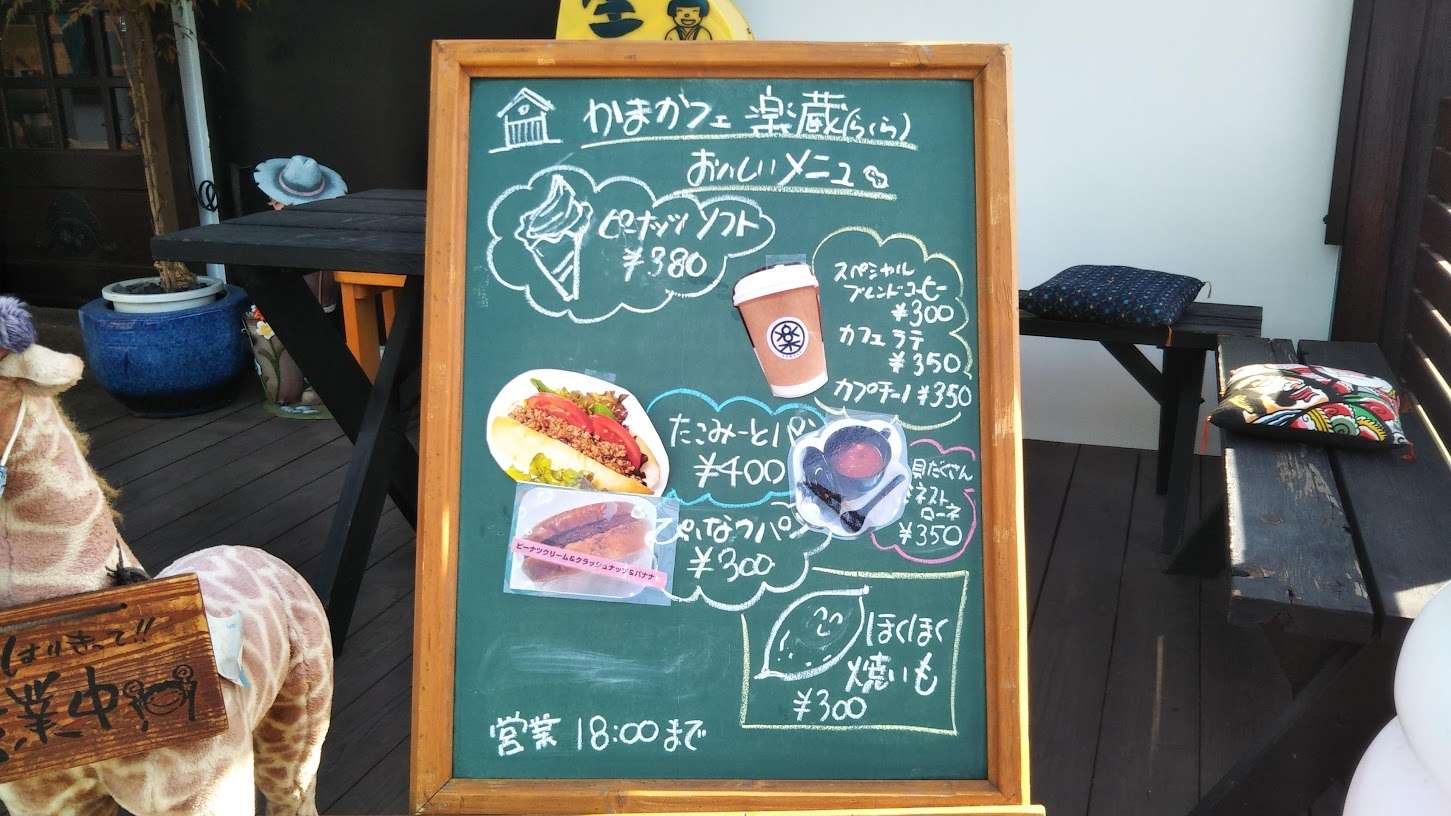 かまカフェ 楽蔵(らくら)
おいしいメニュー
ピーナッツソフト
¥380
スペシャル
ブレンドコーヒー
¥300
カフェラテ
¥350
カプチーノ ¥350
楽
たこみーとパン
¥400
貝だくさん
ミネスト
ローネ
¥350
ぴぃなつパン
¥300
ピーナツクリーム&クラッシュナッツ&バナナ
ほくほく
焼いも
¥300
営業 18:00まで
はりきって!!
営業中